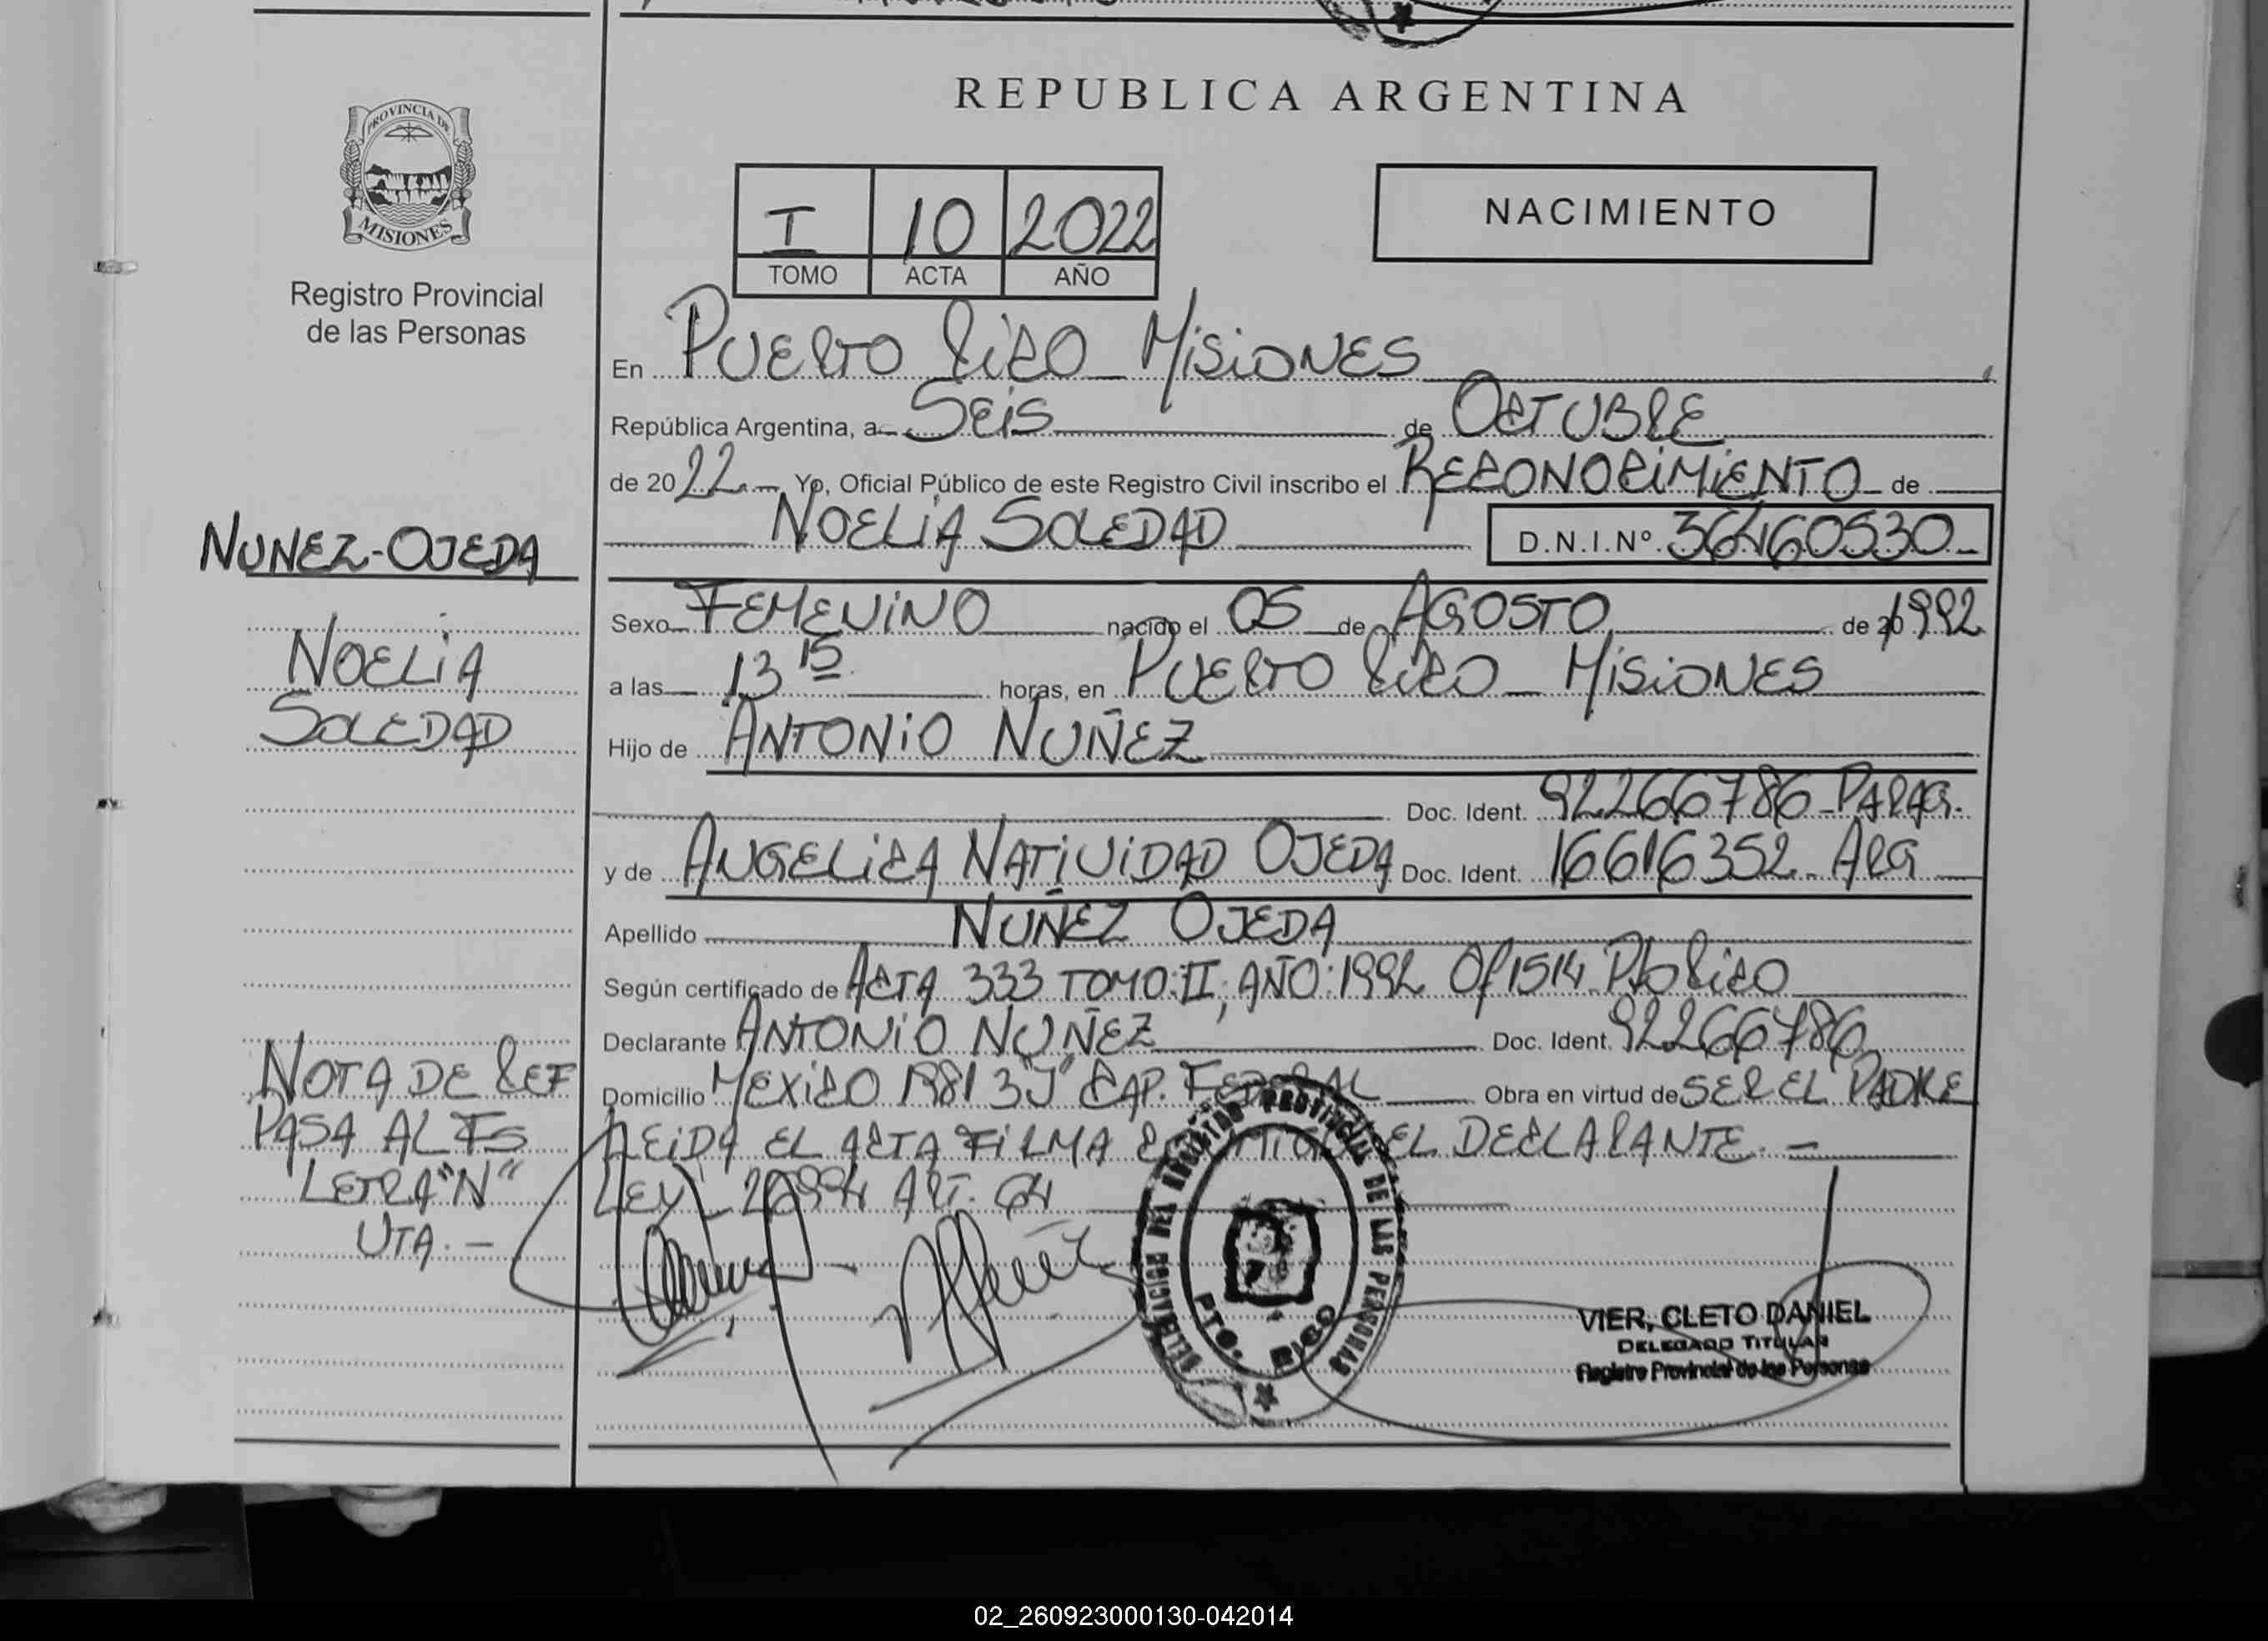 REPUBLICA ARGENTINA
PROVINCIA DE
MISIONES
Registro Provincial
de las Personas
I 10 2022
TOMO ACTA AÑO
NACIMIENTO
En PUERTO RICO MISIONES
República Argentina, a SEIS de OCTUBRE
de 2022.- Yo, Oficial Público de este Registro Civil inscribo el RECONOCIMIENTO de
NOELIA SOLEDAD D.N.I.Nº. 36460530
NUNEZ-OJEDA
NOELIA
SOLEDAD
Sexo FEMENINO nacido el 05 de AGOSTO de 20 1992
a las 13 15 horas, en PUERTO RICO MISIONES
Hijo de ANTONIO NUÑEZ
Doc. Ident. 92266786-PARAG.
y de ANGELICA NATIVIDAD OJEDA Doc. Ident. 16616352-ARG
Apellido NUÑEZ OJEDA
Según certificado de ACTA 333 TOMO:II, AÑO:1992 Of 1514 Pto RICO
Declarante ANTONIO NUÑEZ Doc. Ident. 92266786
Domicilio MEXICO 1381 3"J" CAP. FEDERAL Obra en virtud de SER EL PADRE
LEIDA EL ACTA FIRMA CONMIGO EL DECLARANTE.-
LEY 26994 ART. 64
NOTA DE REF
PASA AL FS
LETRA "N"
UTA.-
DELEGACION DEL REGISTRO PROVINCIAL DE LAS PERSONAS
PTO. RICO
VIER, CLETO DANIEL
DELEGADO TITULAR
Registro Provincial de las Personas
02_260923000130-042014